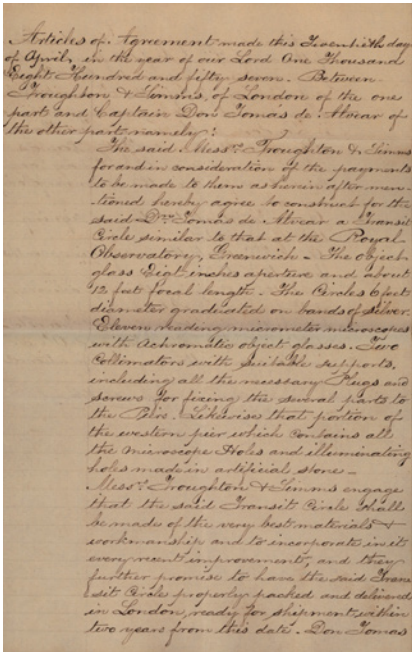 Articles of Agreement made this Twentieth day
of April, in the year of our Lord One Thousand
Eight Hundred and fifty seven. Between
Troughton & Simms, of London of the one
part and Captain Don Tomas de Alvear of
the other part namely:
The said Messrs. Troughton & Simms
for and in consideration of the payments
to be made to them as herein after men-
tioned hereby agree to construct for the
said Dn. Tomas de Alvear a Transit
Circle similar to that at the Royal
Observatory, Greenwich - The object
glass Eigt inches aperture and about
12 feet focal length - The Circles 6 feet
diameter graduated on bands of silver.
Eleven reading micrometer microscopes
with Achromatic object glasses. Two
Collimators with suitable supports,
including all the necessary Plugs and
screws for fixing the several parts to
the Piers. Likewise that portion of
the western pier which contains all
the microscope Holes and illuminating
holes made in artificial stone -
Messrs. Troughton & Simms engage
that the said Transit Circle shall
be made of the very best materials &
workmanship and to incorporate in it
every recent improvements, and they
further promise to have the said Tran
sit Circle properly packed and delivered
in London, ready for shipment within
two years from this date. Don Tomas